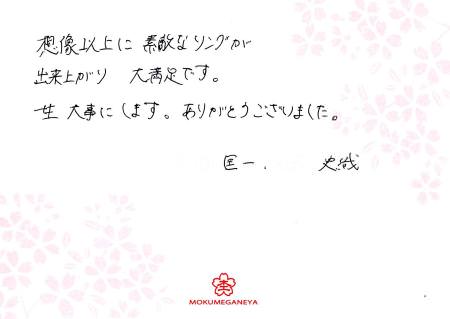 想像以上に 素敵なリングが
出来上がり 大満足です。
一生 大事にします。ありがとうございました。
匡一. 史哉
MOKUMEGANEYA